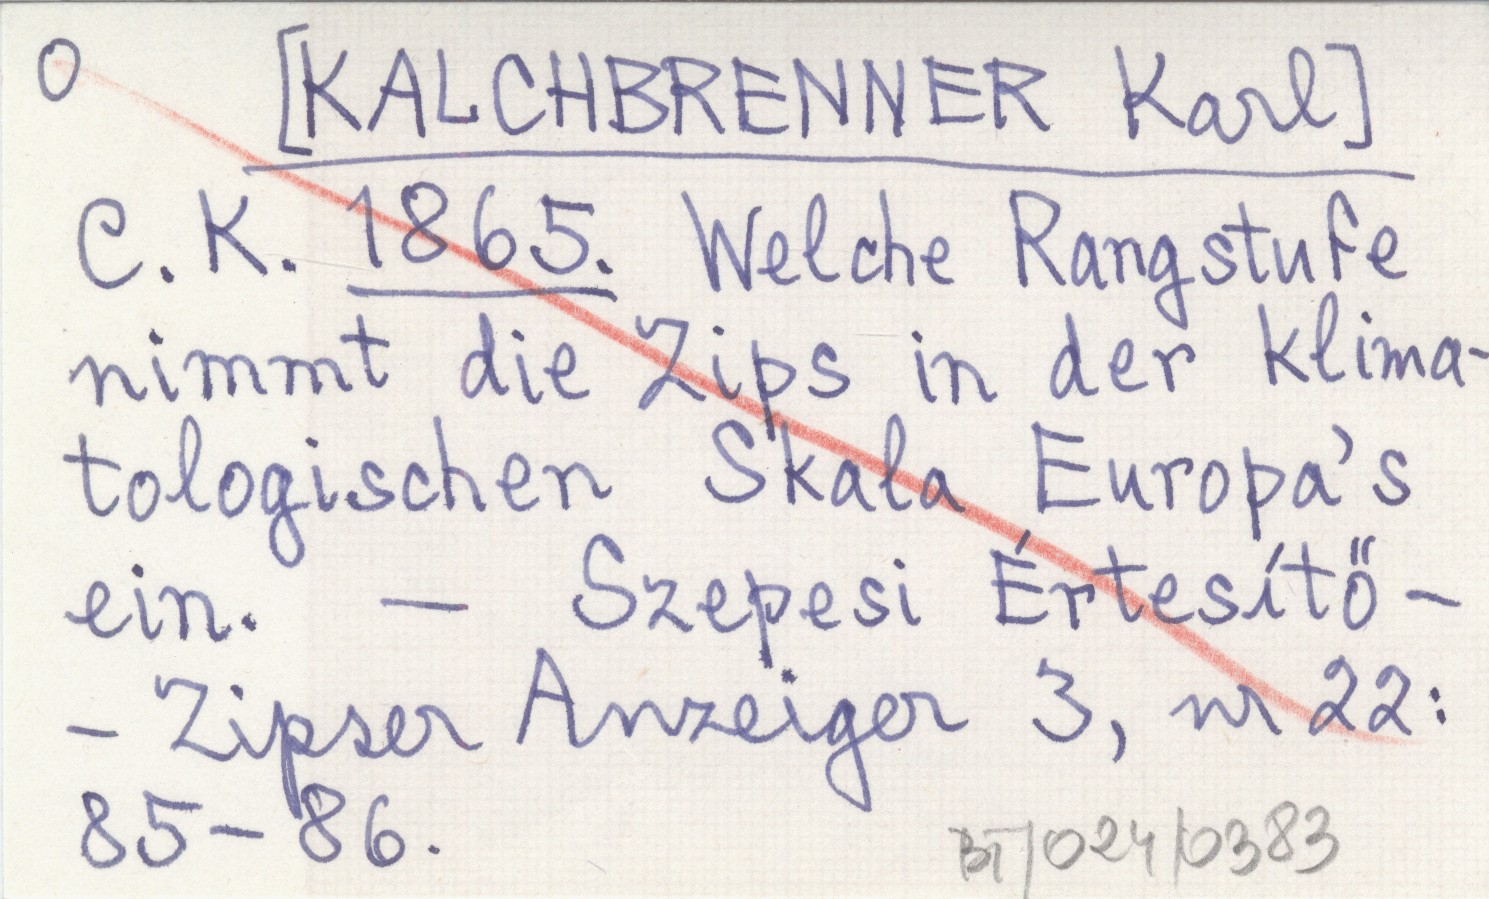 O [KALCHBRENNER Karl]
C. K. 1865. Welche Rangstufe
nimmt die Zips in der Klima-
tologischen Skala Europa's
ein. — Szepesi Értesítő –
– Zipser Anzeiger 3, nr 22:
85–86.
BT/024/0383